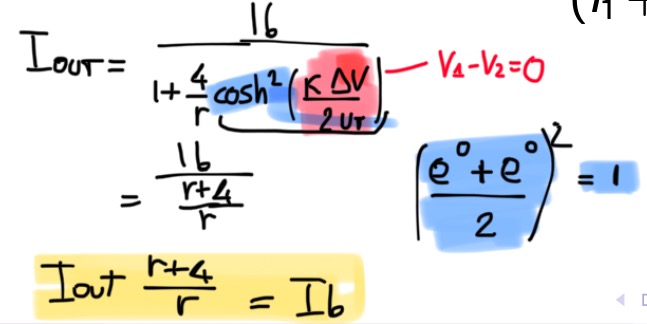 I_OUT = Ib / (1 + 4/r cosh² (κ ΔV / 2 U_T))
V1 - V2 = 0
= Ib / ((r+4)/r)
((e⁰ + e⁰) / 2)² = 1
Iout (r+4)/r = Ib